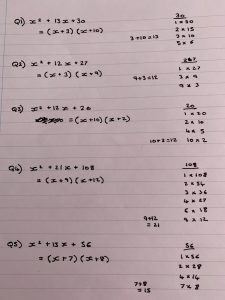 Q1) x² + 13x + 30
= (x+3)(x+10)
3+10=13
30
1 x 30
2 x 15
3 x 10
5 x 6
Q2) x² + 12x + 27
= (x+3)(x+9)
9+3=12
1 x 27
3 x 9
9 x 3
Q3) x² + 12x + 20
= (x+10)(x+2)
10+2=12
20
1 x 20
2 x 10
4 x 5
10 x 2
Q4) x² + 21x + 108
= (x+9)(x+12)
9+12
= 21
108
1 x 108
2 x 54
3 x 36
4 x 27
6 x 18
9 x 12
Q5) x² + 15x + 56
= (x+7)(x+8)
7+8
= 15
56
1 x 56
2 x 28
4 x 14
7 x 8